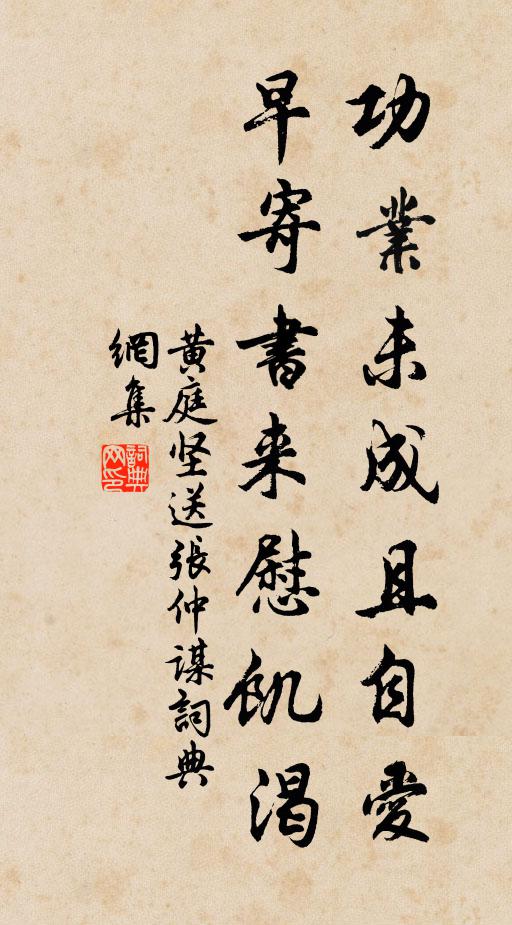 功業未成且自愛
早寄書来慰飢渴
黄庭坚送張仲谋詞典
網集
詞典網印